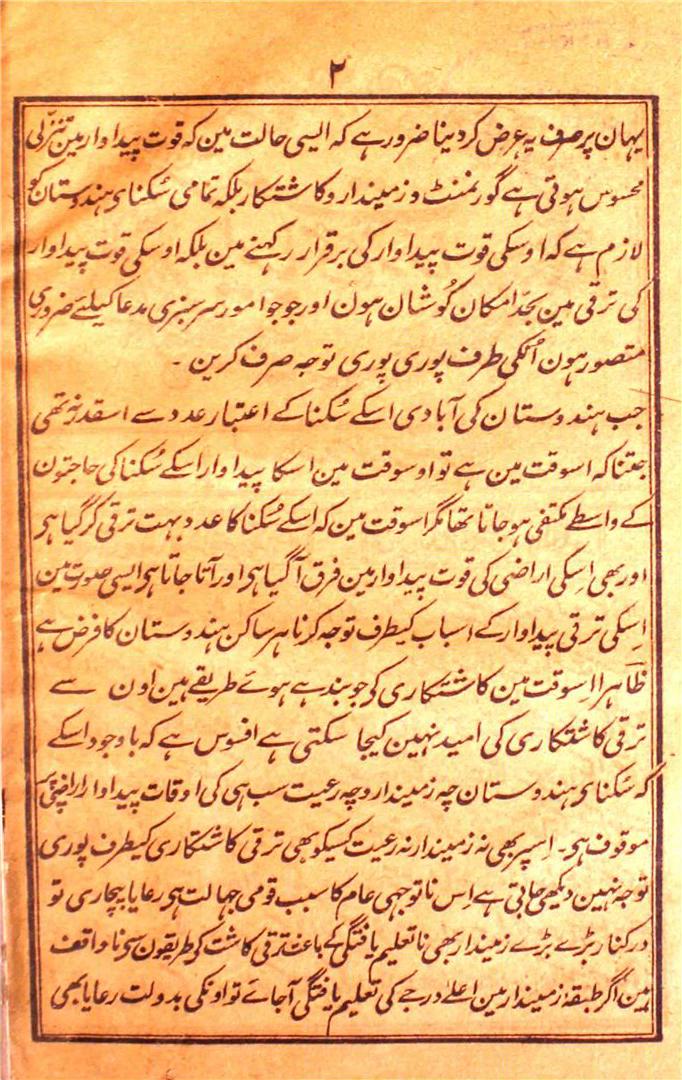 ۲
یہان پر صرف یہ عرض کردینا ضرور ہے کہ ایسی حالت مین کہ قوت پیداوار مین تنزلی
محسوس ہوتی ہے گورنمنٹ و زمیندار و کاشتکار بلکہ تمامی سُکناے ہندوستان کو
لازم ہے کہ اوسکی قوت پیداوار کی برقرار رکہنے مین بلکہ اوسکی قوت پیداوار
کی ترقی مین بحدِّ امکان کوشان ہون اور جو جو امور سرسبزی مدعا کیلئے ضروری
متصور ہون اُنکی طرف پوری پوری توجہ صرف کرین ۔
جب ہندوستان کی آبادی اسکے سُکنا کے اعتبار عدد سے اسقدر نہ تھی
جتنا کہ اسوقت مین ہے تو اوسوقت مین اسکا پیداوار اسکے سُکنا کی حاجتون
کے واسطے مکتفی ہوجاتا تھا مگر اسوقت مین کہ اسکے سُکنا کا عدد بہت ترقی کرگیا ہی
اور بھی اِسکی اراضی کی قوت پیداوار مین فرق آگیا ہی اور آتا جاتا ہی ایسی صورت مین
اِسکی ترقی پیداوار کے اسباب کیطرف توجہ کرنا ہر ساکن ہندوستان کا فرض ہے
ظاہرا اِسوقت مین کاشتکاری کی جو بندہے ہوئے طریقے ہین اون سے
ترقی کاشتکاری کی امید نہین کیجا سکتی ہے افسوس ہے کہ باوجود اسکے
کہ سُکناے ہندوستان چہ زمیندار و چہ رعیت سب ہی کی اوقات پیداوار اراضی پر
موقوف ہی۔ اِسپر بھی نہ زمیندار نہ رعیت کسیکو بھی ترقی کاشتکاری کیطرف پوری
توجہ نہین دیکھی جاتی ہے اِس ناتوجہی عام کا سبب قومی جہالت ہی رعایا بیچاری تو
درکنار بڑے بڑے زمیندار بھی ناتعلیم یافتگی کے باعث ترقی کاشت کی طریقون سی ناواقف
ہین اگر طبقۂ زمیندار مین اعلےٰ درجے کی تعلیم یافتگی آجائے تو اونکی بدولت رعایا بھی